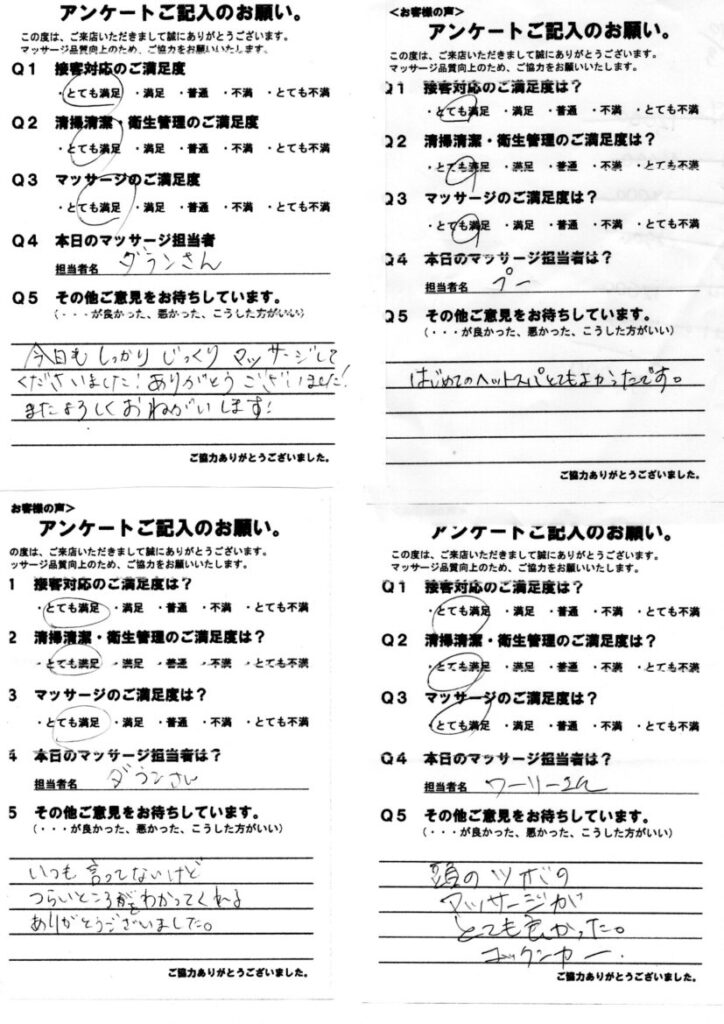 アンケートご記入のお願い。
この度は、ご来店いただきまして誠にありがとうございます。
マッサージ品質向上のため、ご協力をお願いいたします。
Q1 接客対応のご満足度
・とても満足 ・満足 ・普通 ・不満 ・とても不満
Q2 清掃清潔・衛生管理のご満足度
・とても満足 ・満足 ・普通 ・不満 ・とても不満
Q3 マッサージのご満足度
・とても満足 ・満足 ・普通 ・不満 ・とても不満
Q4 本日のマッサージ担当者
担当者名 ダランさん
Q5 その他ご意見をお待ちしています。
(・・・が良かった、悪かった、こうした方がいい)
今日も しっかり じっくり マッサージして
くださいました!ありがとうございました!
またよろしくおねがいします!
ご協力ありがとうございました。
<お客様の声>
アンケートご記入のお願い。
この度は、ご来店いただきまして誠にありがとうございます。
マッサージ品質向上のため、ご協力をお願いいたします。
Q1 接客対応のご満足度は?
・とても満足 ・満足 ・普通 ・不満 ・とても不満
Q2 清掃清潔・衛生管理のご満足度は?
・とても満足 ・満足 ・普通 ・不満 ・とても不満
Q3 マッサージのご満足度は?
・とても満足 ・満足 ・普通 ・不満 ・とても不満
Q4 本日のマッサージ担当者は?
担当者名 プー
Q5 その他ご意見をお待ちしています。
(・・・が良かった、悪かった、こうした方がいい)
はじめてのヘットスパとてもよかったです。
ご協力ありがとうございました。
お客様の声>
アンケートご記入のお願い。
の度は、ご来店いただきまして誠にありがとうございます。
ッサージ品質向上のため、ご協力をお願いいたします。
1 接客対応のご満足度は?
・とても満足 ・満足 ・普通 ・不満 ・とても不満
2 清掃清潔・衛生管理のご満足度は?
・とても満足 ・満足 ・普通 ・不満 ・とても不満
3 マッサージのご満足度は?
・とても満足 ・満足 ・普通 ・不満 ・とても不満
4 本日のマッサージ担当者は?
担当者名 ダランさん
5 その他ご意見をお待ちしています。
(・・・が良かった、悪かった、こうした方がいい)
いつも言ってないけど
つらいところがわかってくれる
ありがとうございました。
ご協力ありがとうございました。
アンケートご記入のお願い。
この度は、ご来店いただきまして誠にありがとうございます。
マッサージ品質向上のため、ご協力をお願いいたします。
Q1 接客対応のご満足度は?
・とても満足 ・満足 ・普通 ・不満 ・とても不満
Q2 清掃清潔・衛生管理のご満足度は?
・とても満足 ・満足 ・普通 ・不満 ・とても不満
Q3 マッサージのご満足度は?
・とても満足 ・満足 ・普通 ・不満 ・とても不満
Q4 本日のマッサージ担当者は?
担当者名 ワーリーさん
Q5 その他ご意見をお待ちしています。
(・・・が良かった、悪かった、こうした方がいい)
頭のツボの
マッサージが
とても良かった。
コックンカー.
ご協力ありがとうございました。